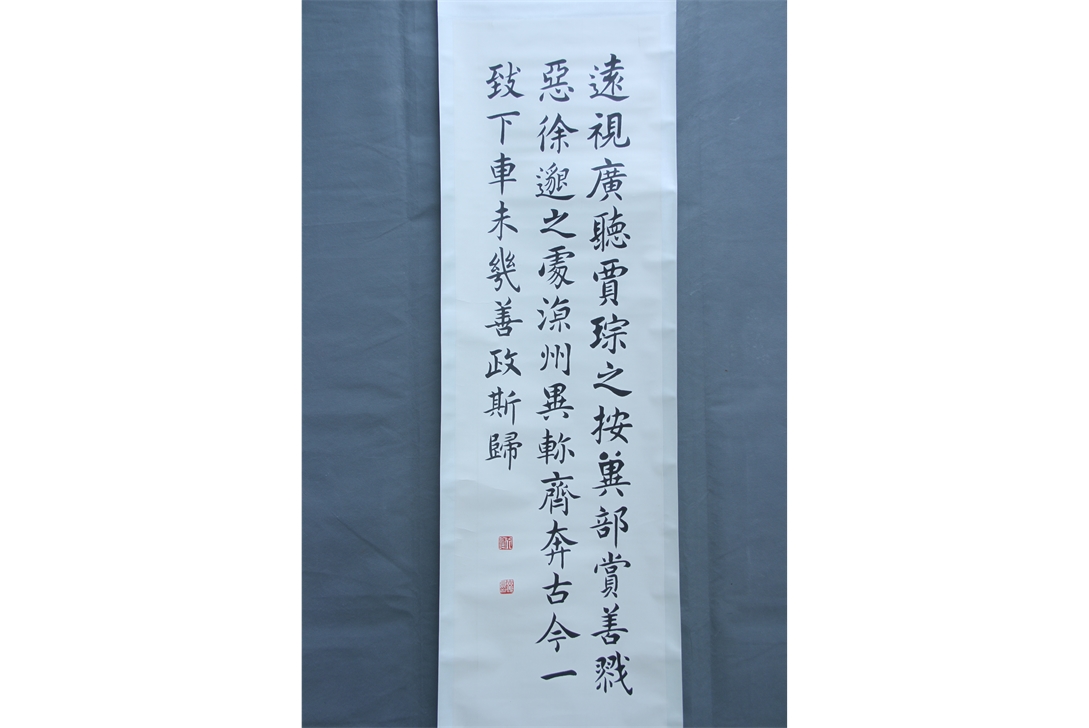 遠視廣聽賈琮之按冀部賞善戮
惡徐邈之處涼州異軫齊奔古今一
致下車未幾善政斯歸